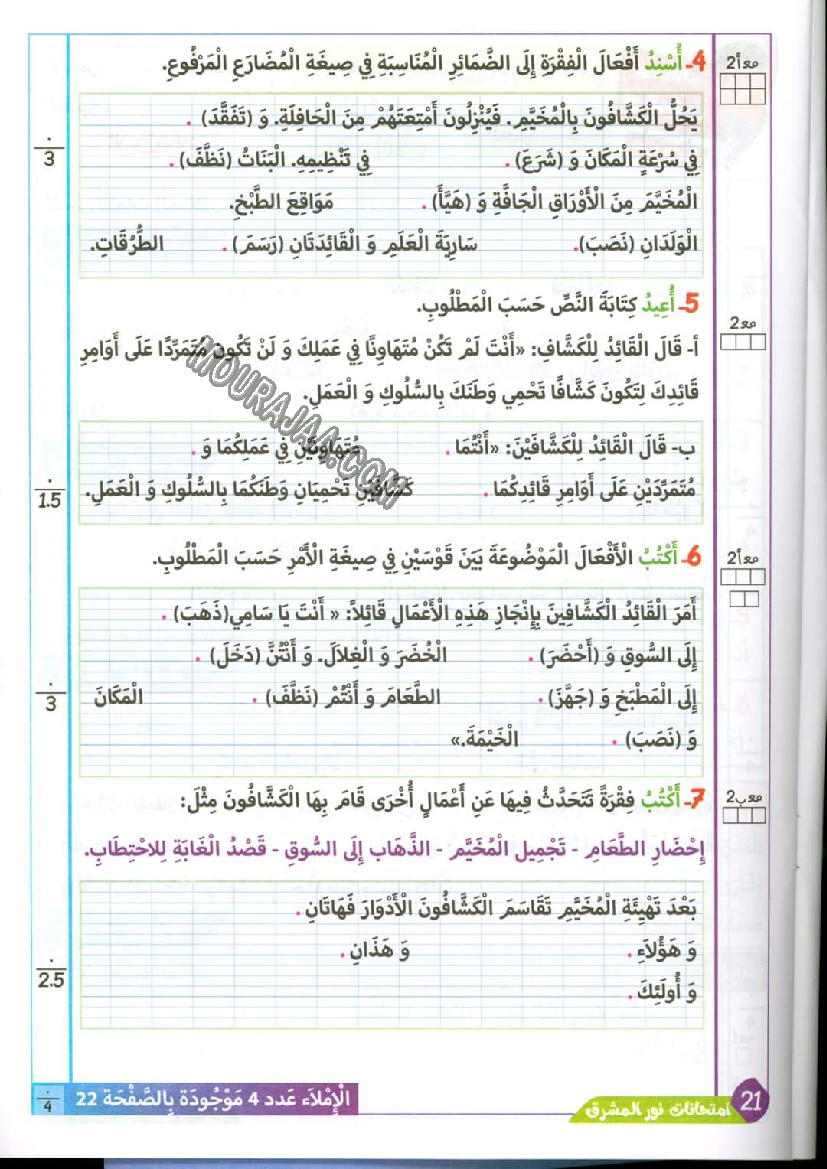 مع أ2
4- أُسْنِدُ أَفْعَالَ الْفِقْرَةِ إِلَى الضَّمَائِرِ الْمُنَاسِبَةِ فِي صِيغَةِ الْمُضَارَعِ الْمَرْفُوعِ.
يَحُلُّ الْكَشَّافُونَ بِالْمُخَيَّمِ. فَيُنْزِلُونَ أَمْتِعَتَهُمْ مِنَ الْحَافِلَةِ. وَ (تَفَقَّدَ) .
3
فِي سُرْعَةٍ الْمَكَانَ وَ (شَرَعَ) . فِي تَنْظِيمِهِ. الْبَنَاتُ (نَظَّفَ) .
الْمُخَيَّمَ مِنَ الْأَوْرَاقِ الْجَافَّةِ وَ (هَيَّأَ) . مَوَاقِعَ الطَّبْخِ.
الْوَلَدَانِ (نَصَبَ). سَارِيَةَ الْعَلَمِ وَ الْقَائِدَتَانِ (رَسَمَ) . الطُّرُقَاتِ.
5- أُعِيدُ كِتَابَةَ النَّصِّ حَسَبَ الْمَطْلُوبِ.
مع2
أ- قَالَ الْقَائِدُ لِلْكَشَّافِ: «أَنْتَ لَمْ تَكُنْ مُتَهَاوِنًا فِي عَمَلِكَ وَ لَنْ تَكُونَ مُتَمَرِّدًا عَلَى أَوَامِرِ
قَائِدِكَ لِتَكُونَ كَشَّافًا تَحْمِي وَطَنَكَ بِالسُّلُوكِ وَ الْعَمَلِ.
MOURAJAA.COM
ب- قَالَ الْقَائِدُ لِلْكَشَّافَيْنِ: «أَنْتُمَا . مُتَهَاوِنَيْنِ فِي عَمَلِكُمَا وَ .
1.5
مُتَمَرِّدَيْنِ عَلَى أَوَامِرِ قَائِدِكُمَا . كَشَّافَيْنِ تَحْمِيَانِ وَطَنَكُمَا بِالسُّلُوكِ وَ الْعَمَلِ.
مع أ2
6- أَكْتُبُ الْأَفْعَالَ الْمَوْضُوعَةَ بَيْنَ قَوْسَيْنِ فِي صِيغَةِ الْأَمْرِ حَسَبَ الْمَطْلُوبِ.
أَمَرَ الْقَائِدُ الْكَشَّافِينَ بِإِنْجَازِ هَذِهِ الْأَعْمَالِ قَائِلاً: « أَنْتَ يَا سَامِي(ذَهَبَ) .
إِلَى السُّوقِ وَ (أَحْضَرَ) . الْخُضَرَ وَ الْغِلاَلَ. وَ أَنْتُنَّ (دَخَلَ) .
3
إِلَى الْمَطْبَخِ وَ (جَهَّزَ) . الطَّعَامَ وَ أَنْتُمْ (نَظَّفَ) . الْمَكَانَ
وَ (نَصَبَ) . الْخَيْمَةَ.»
مع ب2
7- أَكْتُبُ فِقْرَةً تَتَحَدَّثُ فِيهَا عَنِ أَعْمَالٍ أُخْرَى قَامَ بِهَا الْكَشَّافُونَ مِثْلَ:
إِحْضَارِ الطَّعَامِ - تَجْمِيل الْمُخَيَّم - الذَّهَاب إِلَى السُّوقِ - قَصْدُ الْغَابَةِ لِلاحْتِطَابِ.
بَعْدَ تَهْيِئَةِ الْمُخَيَّمِ تَقَاسَمَ الْكَشَّافُونَ الْأَدْوَارَ فَهَاتَانِ .
وَ هَؤُلاَءِ . وَ هَذَانِ .
2.5
وَ أُولَئِكَ .
21
امتحانات نور المشرق
الْإِمْلاَء عَدد 4 مَوْجُودَة بِالصَّفْحَة 22
4